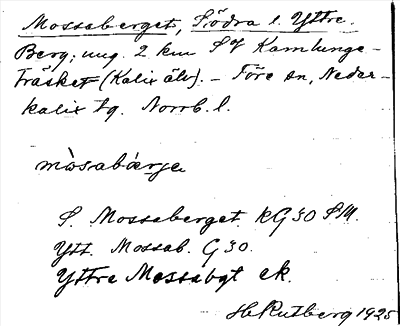 Mossaberget, Södra l. Yttre.
Berg; ung. 2 km SV Kamlunge-
träsket (Kalix älv). – Töre sn, Neder-
kalix tg. Norrb. l.
mòsabǽrje
S. Mossaberget KG 30 SM.
Ytt. Mossab. G 30.
Yttre Mossabgt ek.
H. Rutberg 1925